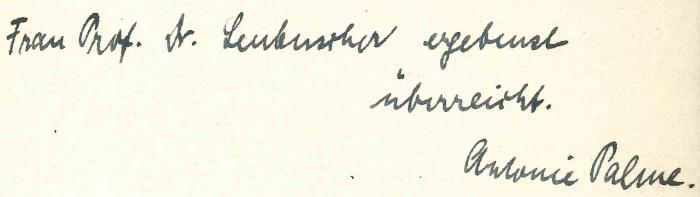 Frau Prof. Dr. Leubuscher ergebenst
überreicht.
Antonie Palme.